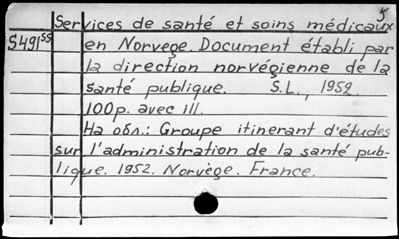 5
Services de santé et soins médicaux
S491⁵⁵ en Norvege. Document établi par
la direction norvégienne de la
santé publique. S.L., 1952
100p. avec ill.
На обл.: Groupe itinerant d'études
sur l'administration de la santé pub-
lique. 1952. Norvège. France.